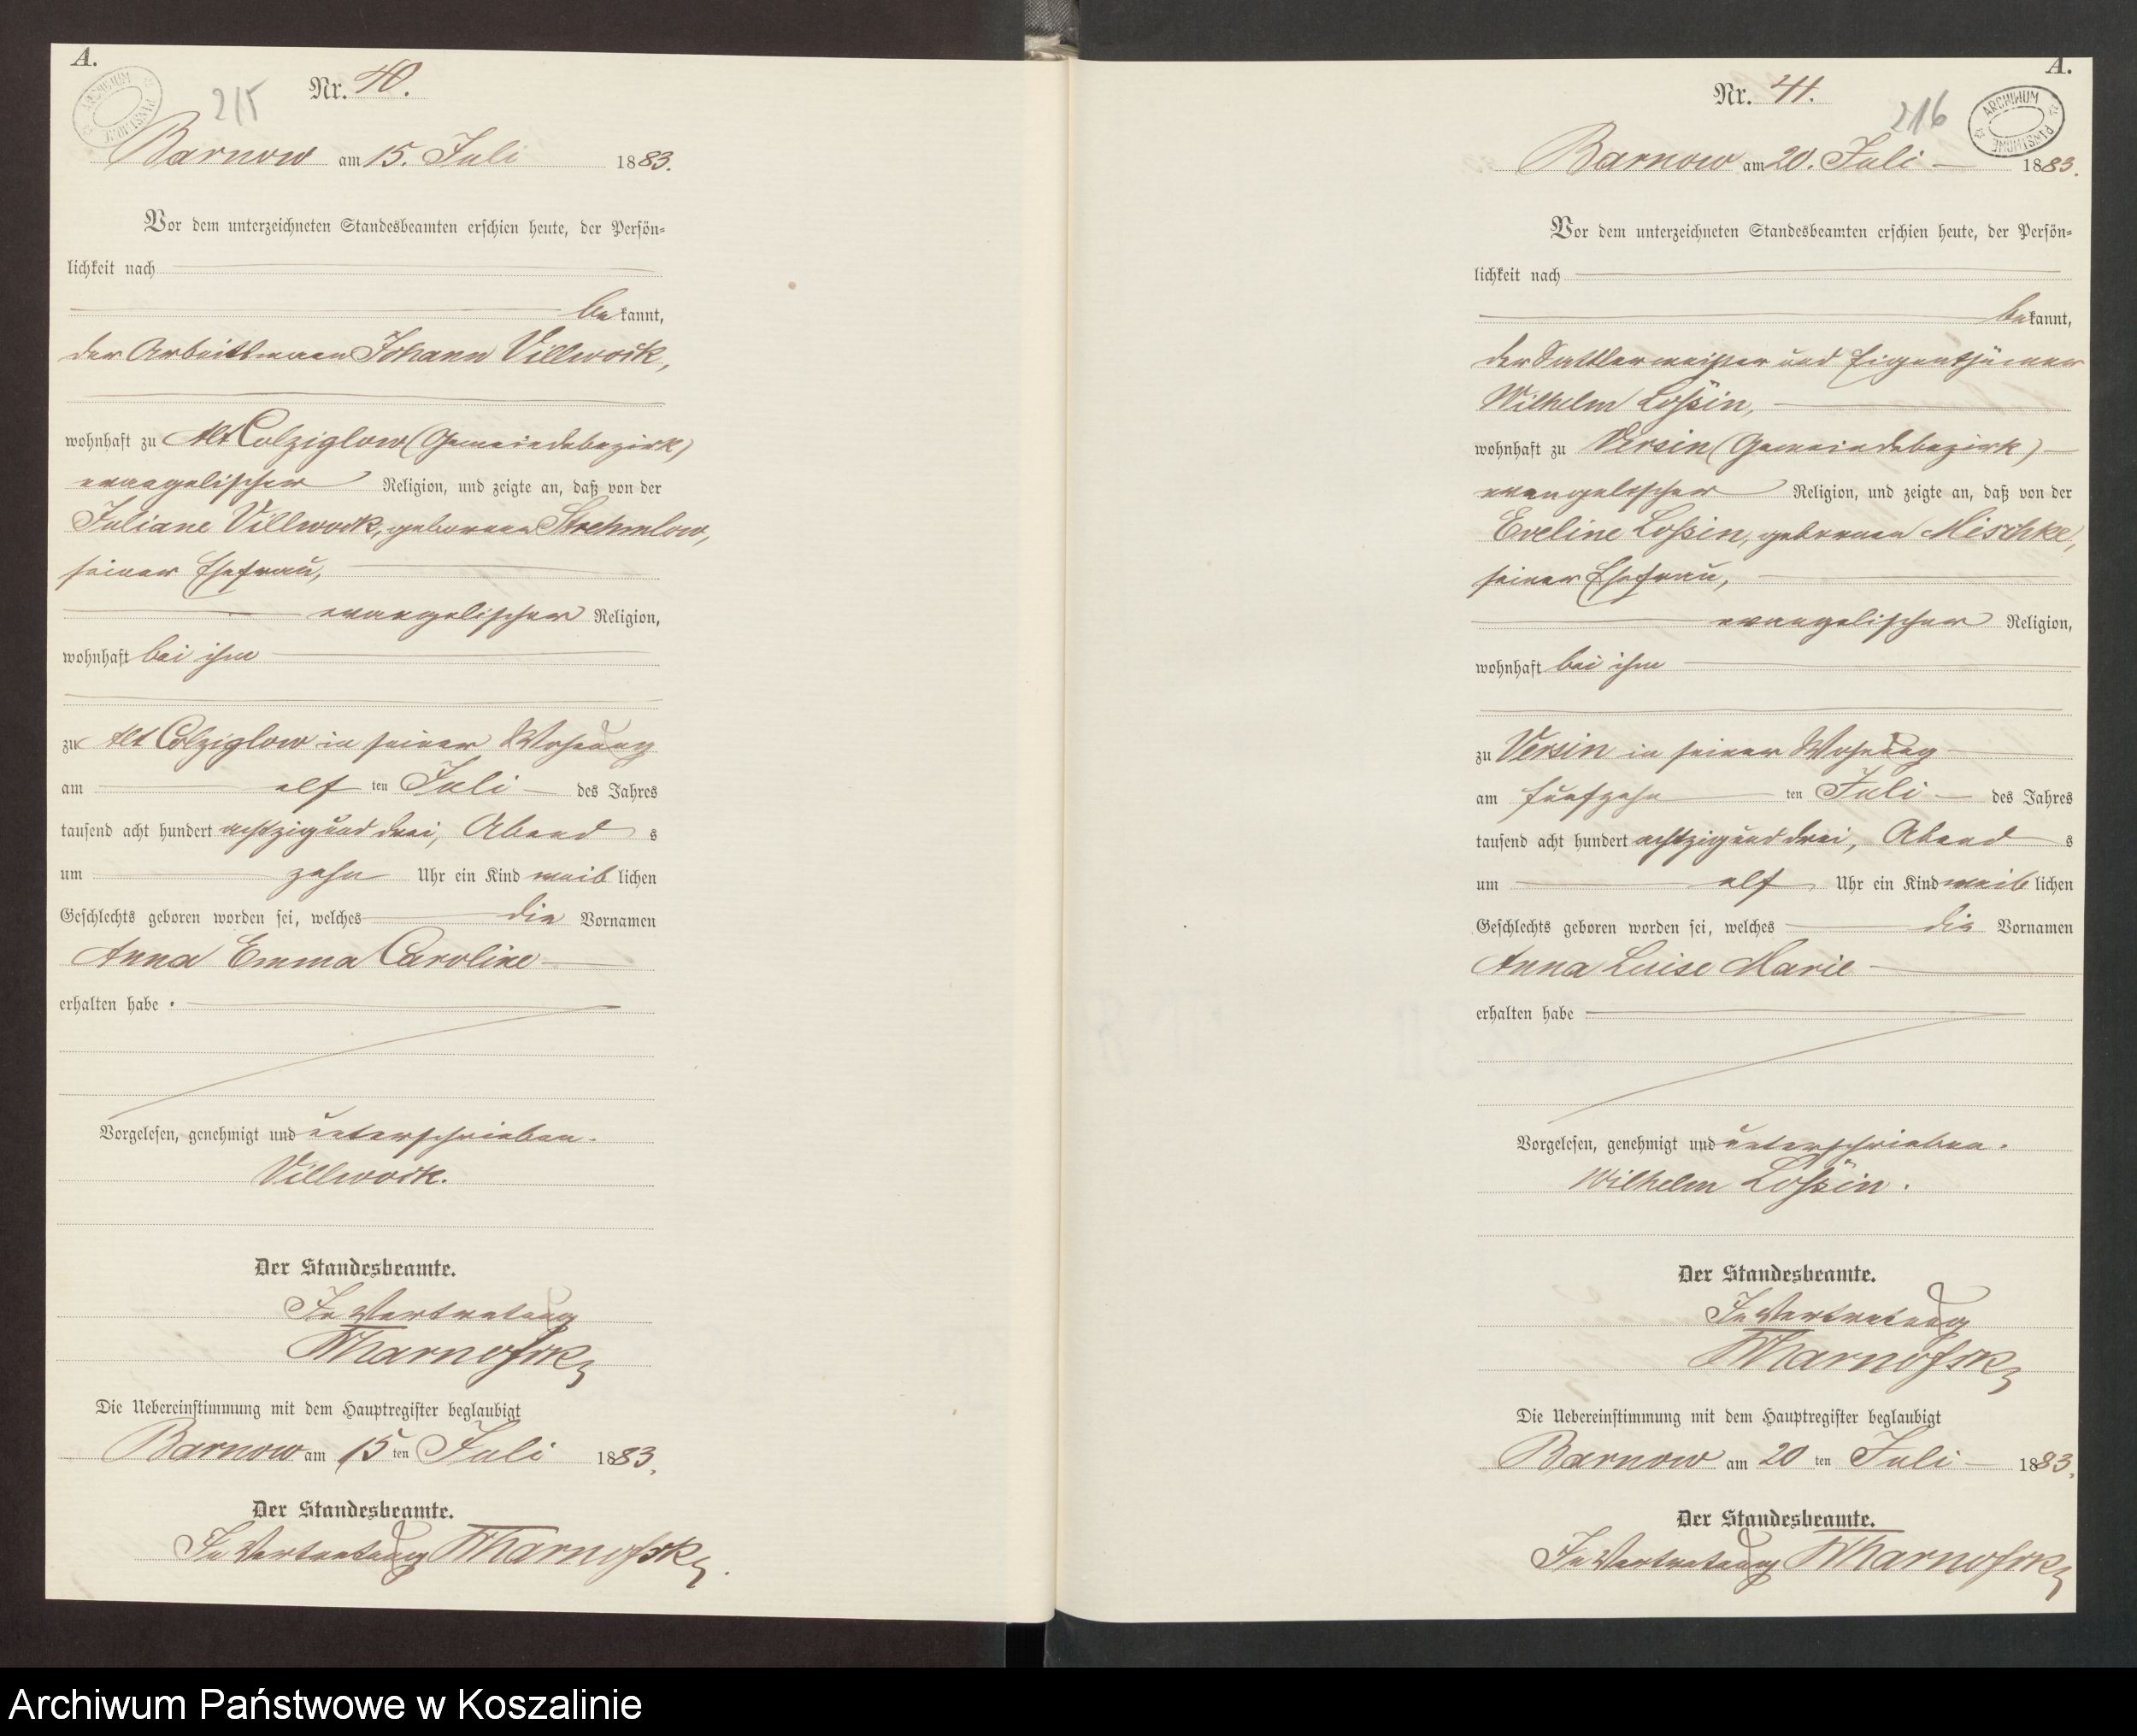 A.
ARCHIWUM PAŃSTWOWE
215
Nr. 40.
Barnow am 15. Juli 1883.
Vor dem unterzeichneten Standesbeamten erschien heute, der Persön-
lichkeit nach
be kannt,
der Arbeitsmann Johann Villwock,
wohnhaft zu Alt Colziglow (Gemeindebezirk)
evangelischer Religion, und zeigte an, daß von der
Juliane Villwock, geborenen Strehmlow,
seiner Ehefrau,
evangelischer Religion,
wohnhaft bei ihm
zu Alt Colziglow in seiner Wohnung
am elf ten Juli des Jahres
tausend acht hundert achtzig und drei, Abend s
um zehn Uhr ein Kind weib lichen
Geschlechts geboren worden sei, welches die Vornamen
Anna Emma Caroline
erhalten habe.
Vorgelesen, genehmigt und unterschrieben.
Villwock.
Der Standesbeamte.
In Vertretung
Die Uebereinstimmung mit dem Hauptregister beglaubigt
Barnow am 15 ten Juli 1883.
Der Standesbeamte.
In Vertretung
A.
ARCHIWUM PAŃSTWOWE
216
Nr. 41.
Barnow am 20. Juli 1883.
Vor dem unterzeichneten Standesbeamten erschien heute, der Persön-
lichkeit nach
be kannt,
der Sattlermeister und Eigenthümer
Wilhelm Loßin,
wohnhaft zu Versin (Gemeindebezirk)
evangelischer Religion, und zeigte an, daß von der
Eveline Loßin, geborenen Mischke,
seiner Ehefrau,
evangelischer Religion,
wohnhaft bei ihm
zu Versin in seiner Wohnung
am fünfzehn ten Juli des Jahres
tausend acht hundert achtzig und drei, Abend s
um elf Uhr ein Kind weib lichen
Geschlechts geboren worden sei, welches die Vornamen
Anna Luise Marie
erhalten habe
Vorgelesen, genehmigt und unterschrieben.
Wilhelm Loßin.
Der Standesbeamte.
In Vertretung
Die Uebereinstimmung mit dem Hauptregister beglaubigt
Barnow am 20 ten Juli 1883.
Der Standesbeamte.
In Vertretung
Archiwum Państwowe w Koszalinie